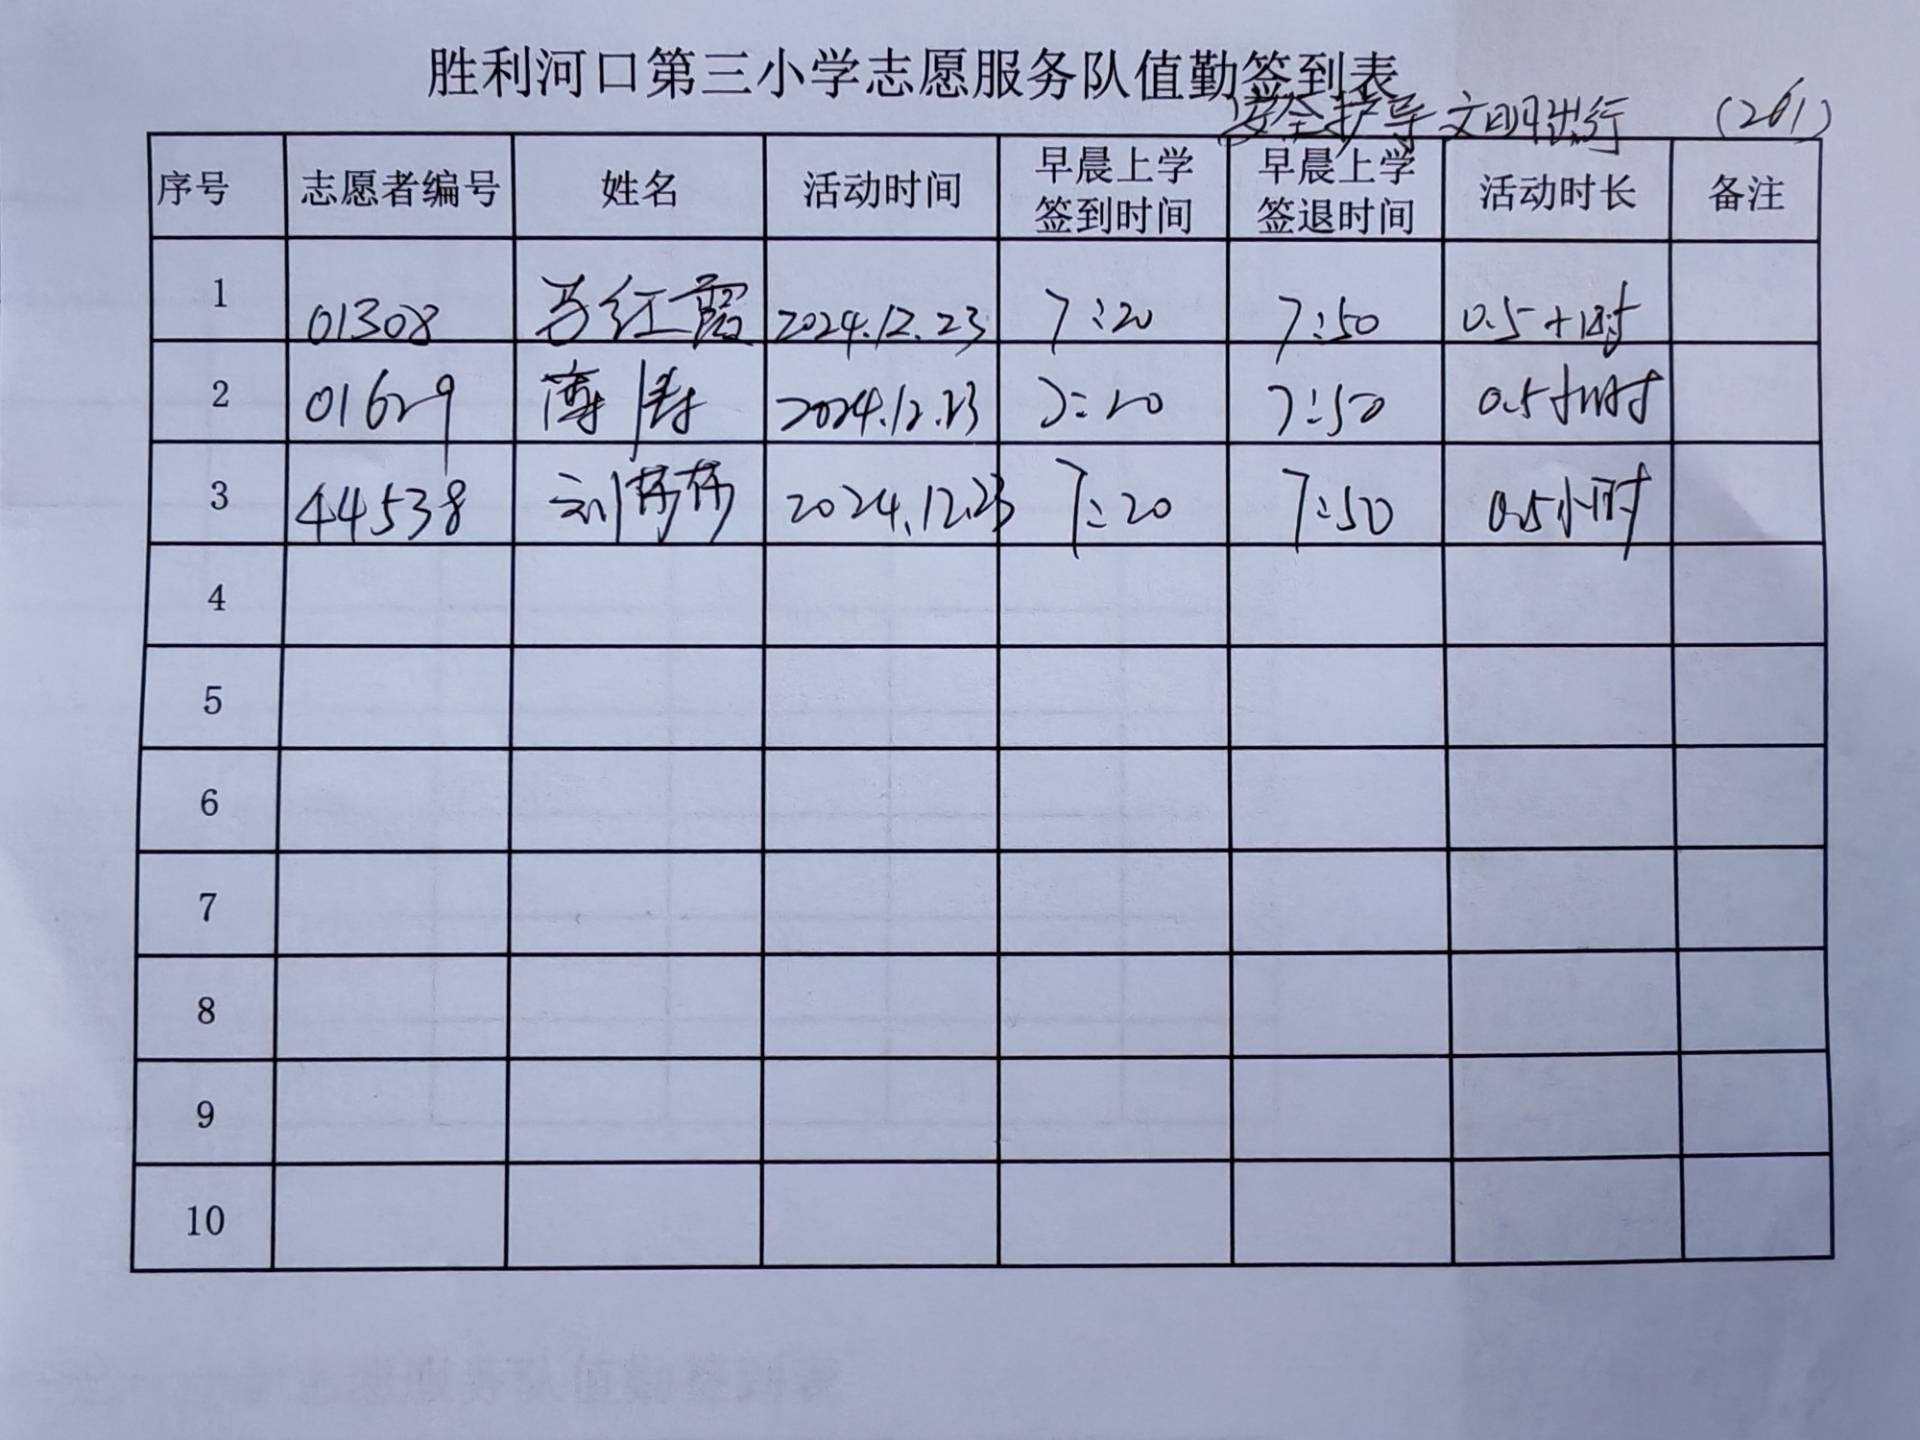 胜利河口第三小学志愿服务队值勤签到表
安全护导 文明出行 (261)
序号 志愿者编号 姓名 活动时间 早晨上学签到时间 早晨上学签退时间 活动时长 备注
1 01308 红霞 2024.12.23 7:20 7:50 0.5小时
2 01629 涛 2024.12.23 7:20 7:50 0.5小时
3 44538 刘莎莎 2024.12.23 7:20 7:50 0.5小时
4
5
6
7
8
9
10